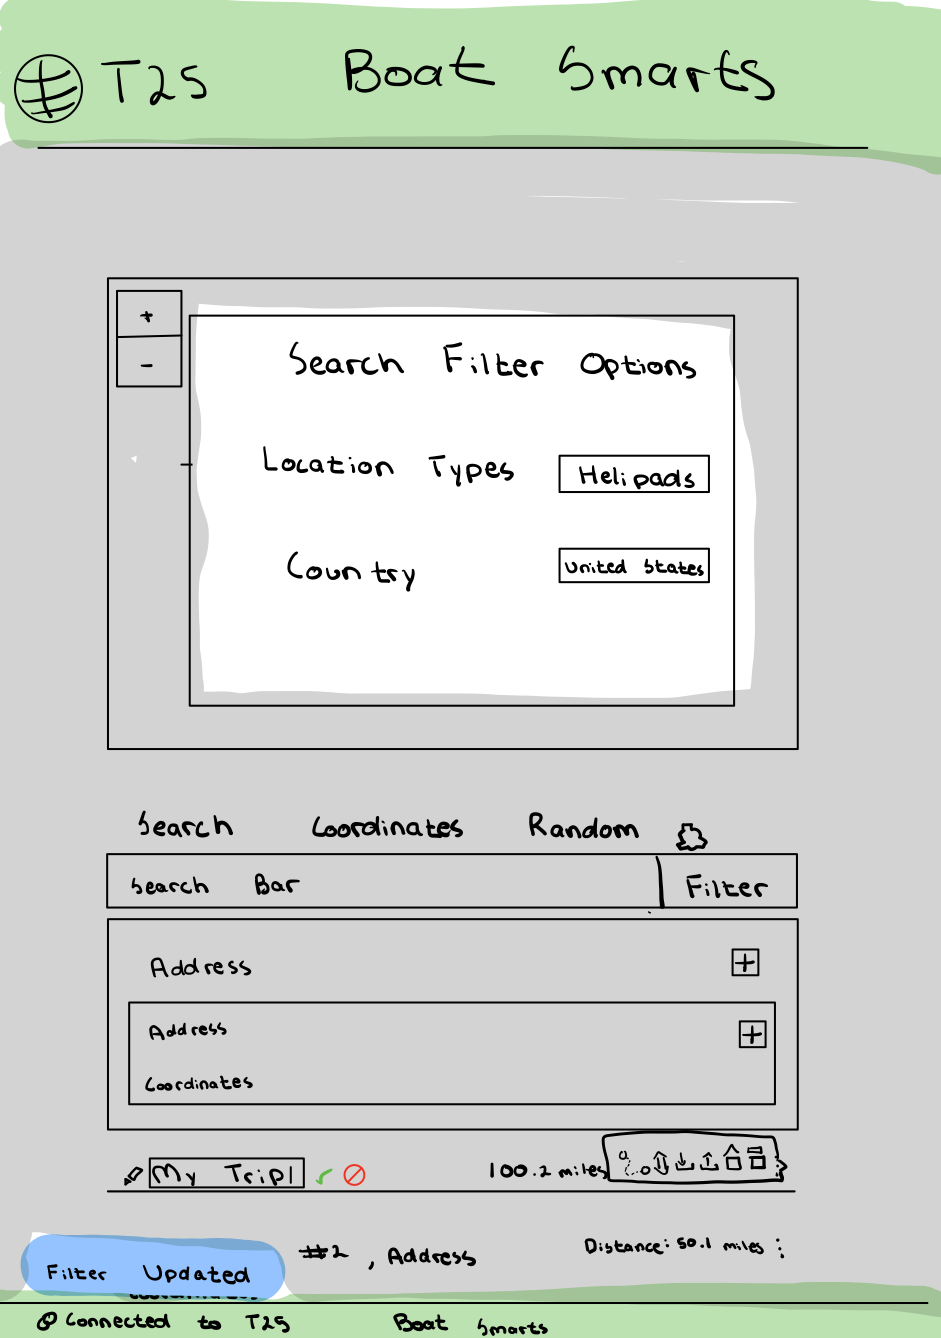 T25 Boat Smarts
+
-
Search Filter Options
Location Types Helipads
Country United States
Search Coordinates Random
Search Bar Filter
Address +
Address +
Coordinates
My Trip 100.2 miles
#2 , Address Distance: 50.1 miles
Filter Updated
Connected to T25 Boat Smarts